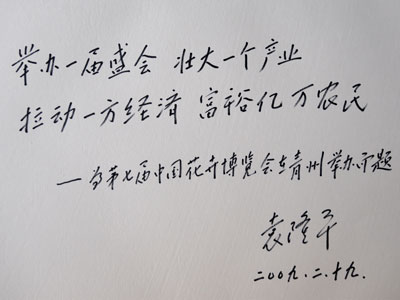 举办一届盛会 壮大一个产业
拉动一方经济 富裕亿万农民
——为第七届中国花卉博览会在青州举办而题
袁隆平
二〇〇九.二.十九.